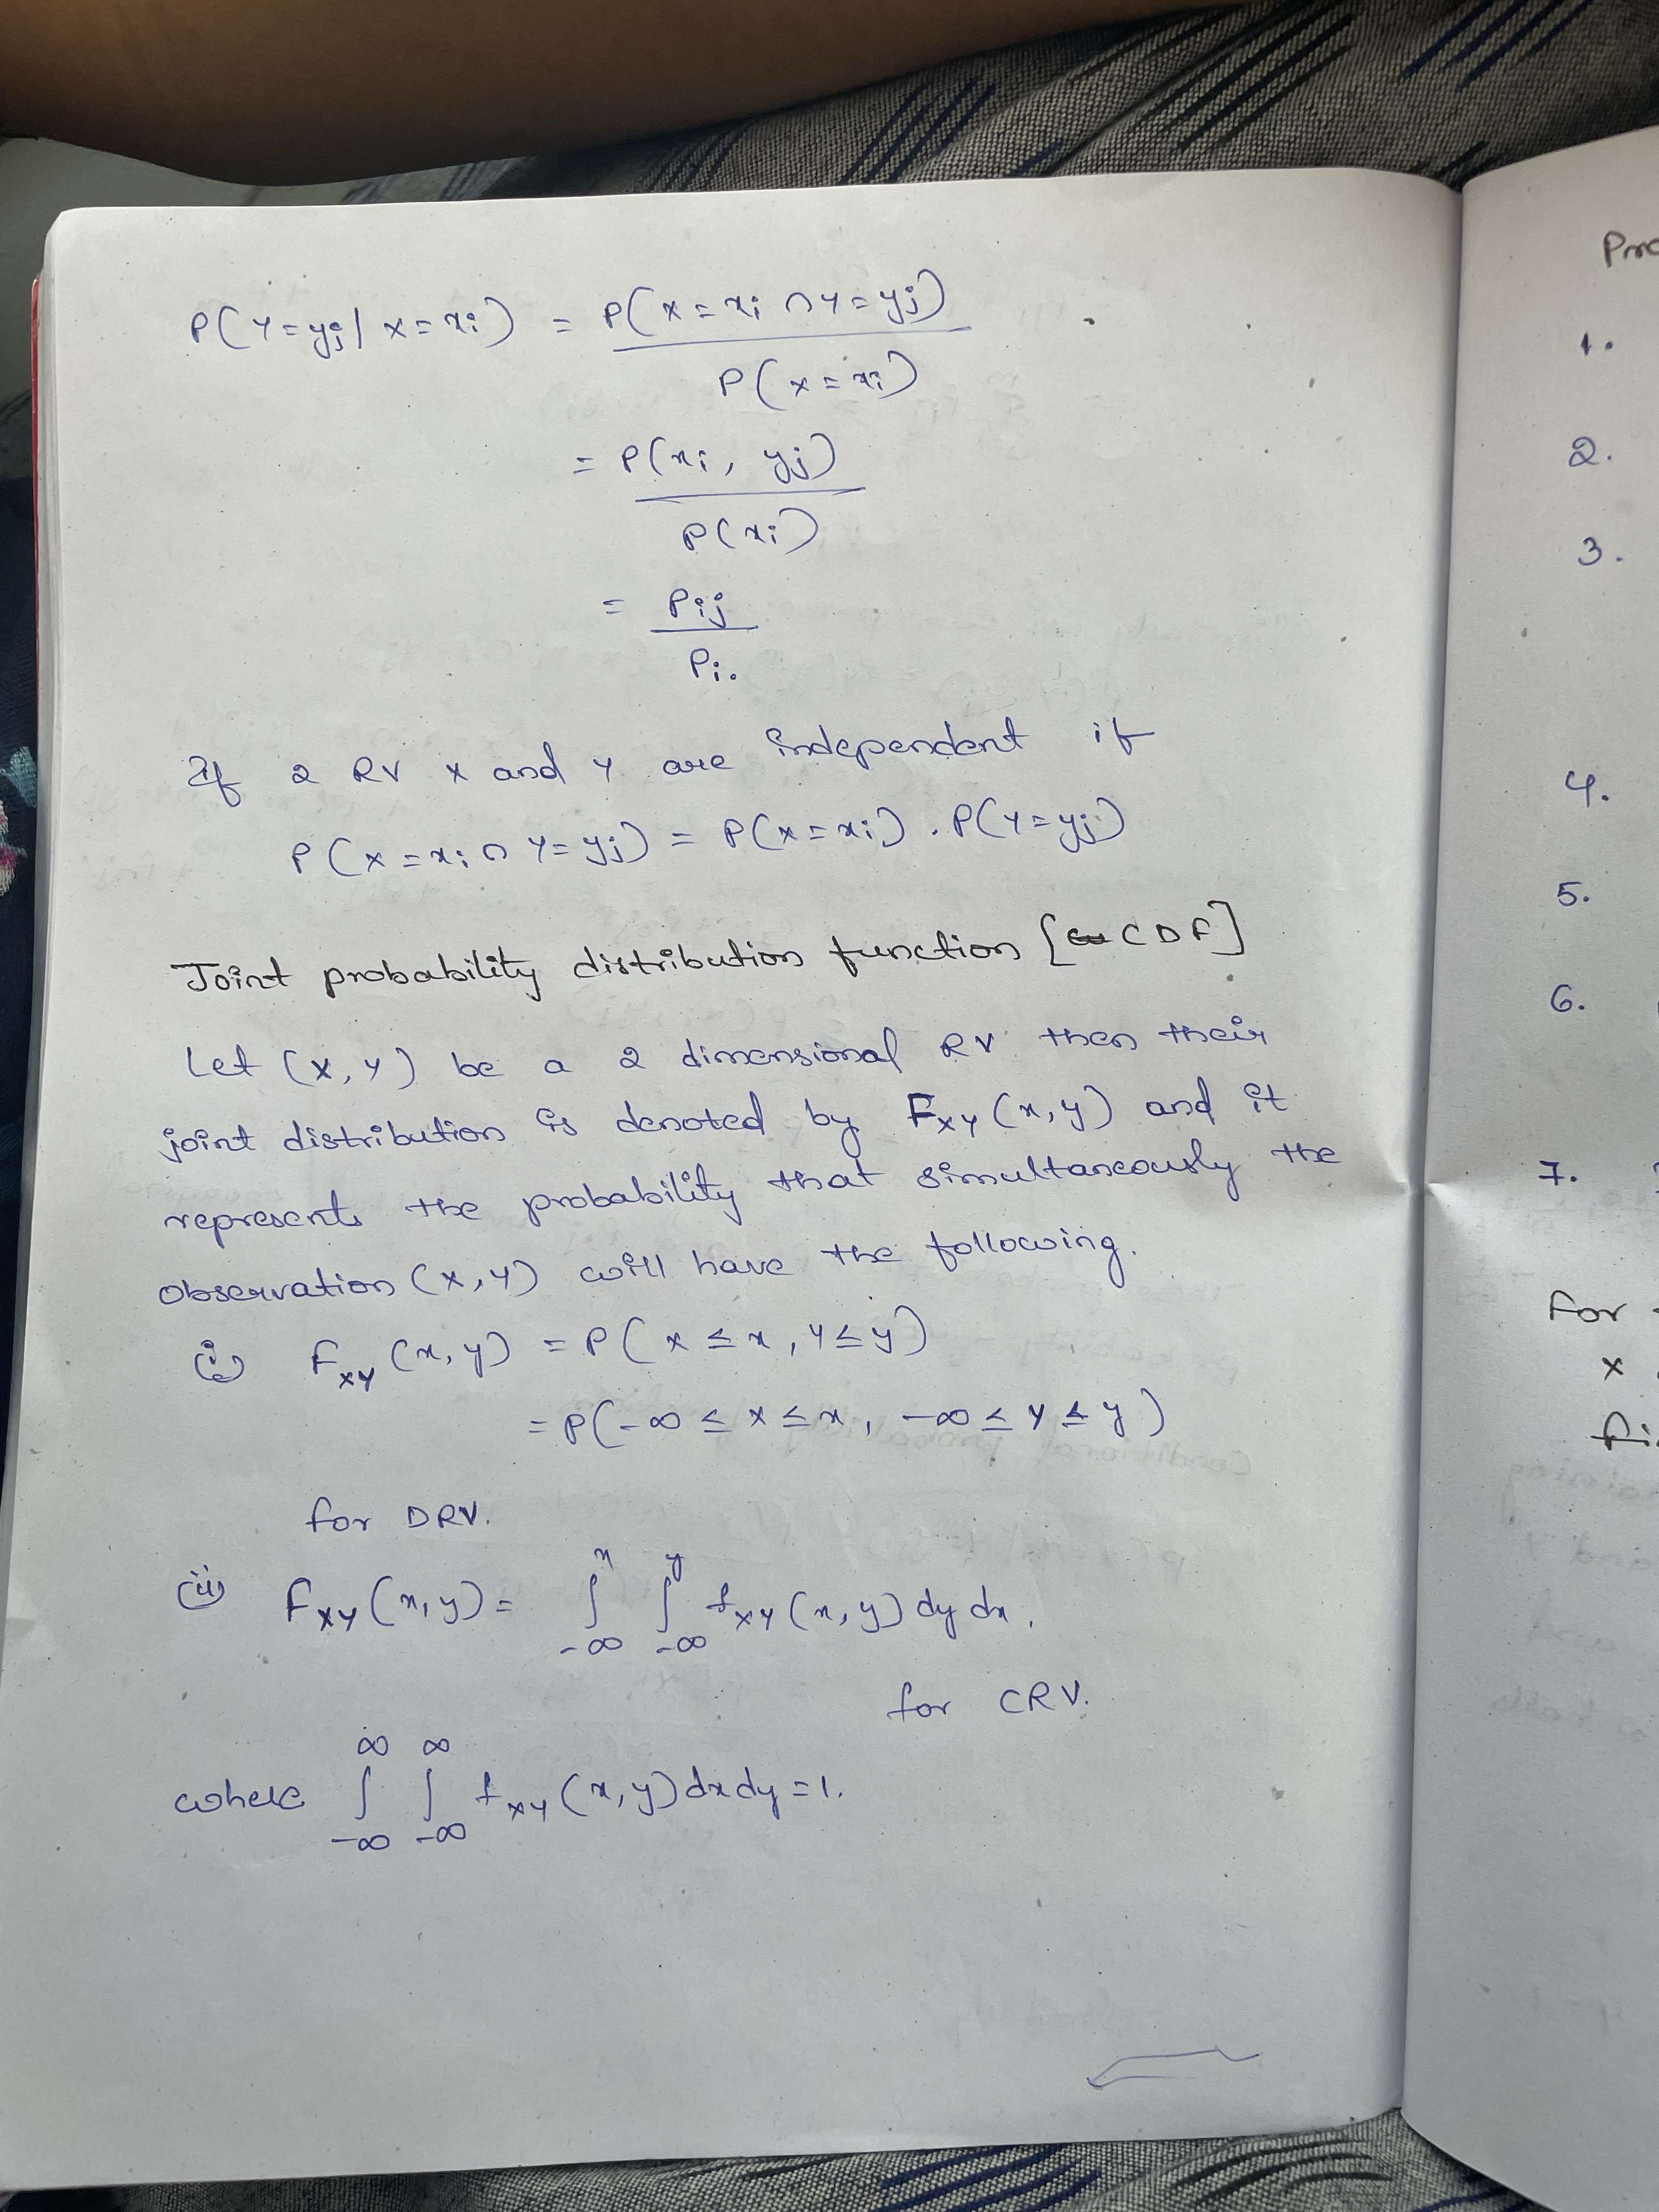 P(Y=yj | X=xi) = P(X=xi ∩ Y=yj)
P(X=xi)
= P(xi, yj)
P(xi)
= Pij
Pi.
If 2 RV X and Y are independent if
P(X=xi ∩ Y=yj) = P(X=xi) . P(Y=yj)
Joint probability distribution function [CDF]
Let (X,Y) be a 2 dimensional RV then their
joint distribution is denoted by FXY(x,y) and it
represents the probability that simultaneously the
observation (X,Y) will have the following.
(i) FXY(x,y) = P(X ≤ x, Y ≤ y)
= P(-∞ ≤ X ≤ x, -∞ ≤ Y ≤ y)
for DRV.
(ii) FXY(x,y) = ∫_{-∞}^{x} ∫_{-∞}^{y} fXY(x,y) dy dx.
for CRV.
where ∫_{-∞}^{∞} ∫_{-∞}^{∞} fXY(x,y) dx dy = 1.
1.
2.
3.
4.
5.
6.
7.
For
X